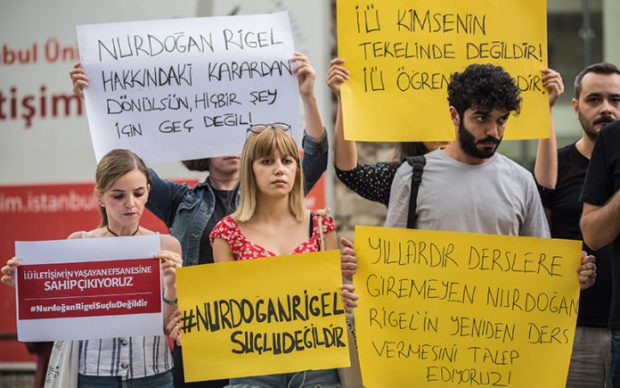 NURDOĞAN RIGEL
HAKKINDAKİ KARARDAN
DÖNÜLSÜN, HİÇBİR ŞEY
İÇİN GEÇ DEĞİL!
İÜ KİMSENİN
TEKELİNDE DEĞİLDİR!
İÜ
bul Ün
tişim
im.istanbu
İÜ İLETİŞİM'İN YAŞAYAN EFSANESİNE
SAHİP ÇIKIYORUZ
#NurdoğanRigelSuçluDeğildir
#NURDOĞANRİGEL
SUÇLUDEĞİLDİR
YILLARDIR DERSLERE
GİREMEYEN NURDOĞAN
RİGEL'İN YENİDEN DERS
VERMESİNİ TALEP
EDİYORUZ!